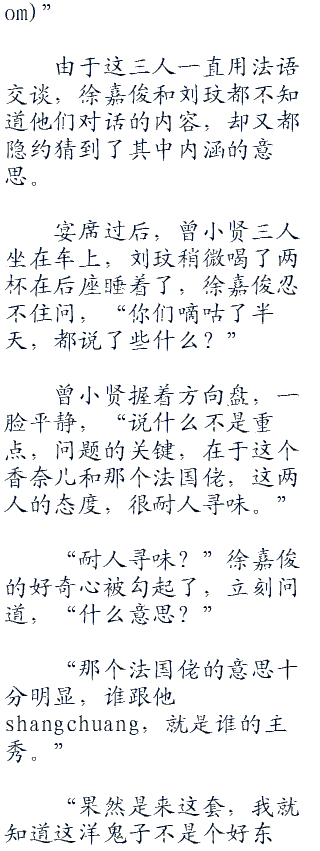 om)”
由于这三人一直用法语
交谈，徐嘉俊和刘玟都不知
道他们对话的内容，却又都
隐约猜到了其中内涵的意
思。
宴席过后，曾小贤三人
坐在车上，刘玟稍微喝了两
杯在后座睡着了，徐嘉俊忍
不住问，“你们嘀咕了半
天，都说了些什么？”
曾小贤握着方向盘，一
脸平静，“说什么不是重
点，问题的关键，在于这个
香奈儿和那个法国佬，这两
人的态度，很耐人寻味。”
“耐人寻味？”徐嘉俊
的好奇心被勾起了，立刻问
道，“什么意思？”
“那个法国佬的意思十
分明显，谁跟他
shangchuang，就是谁的主
秀。”
“果然是来这套，我就
知道这洋鬼子不是个好东